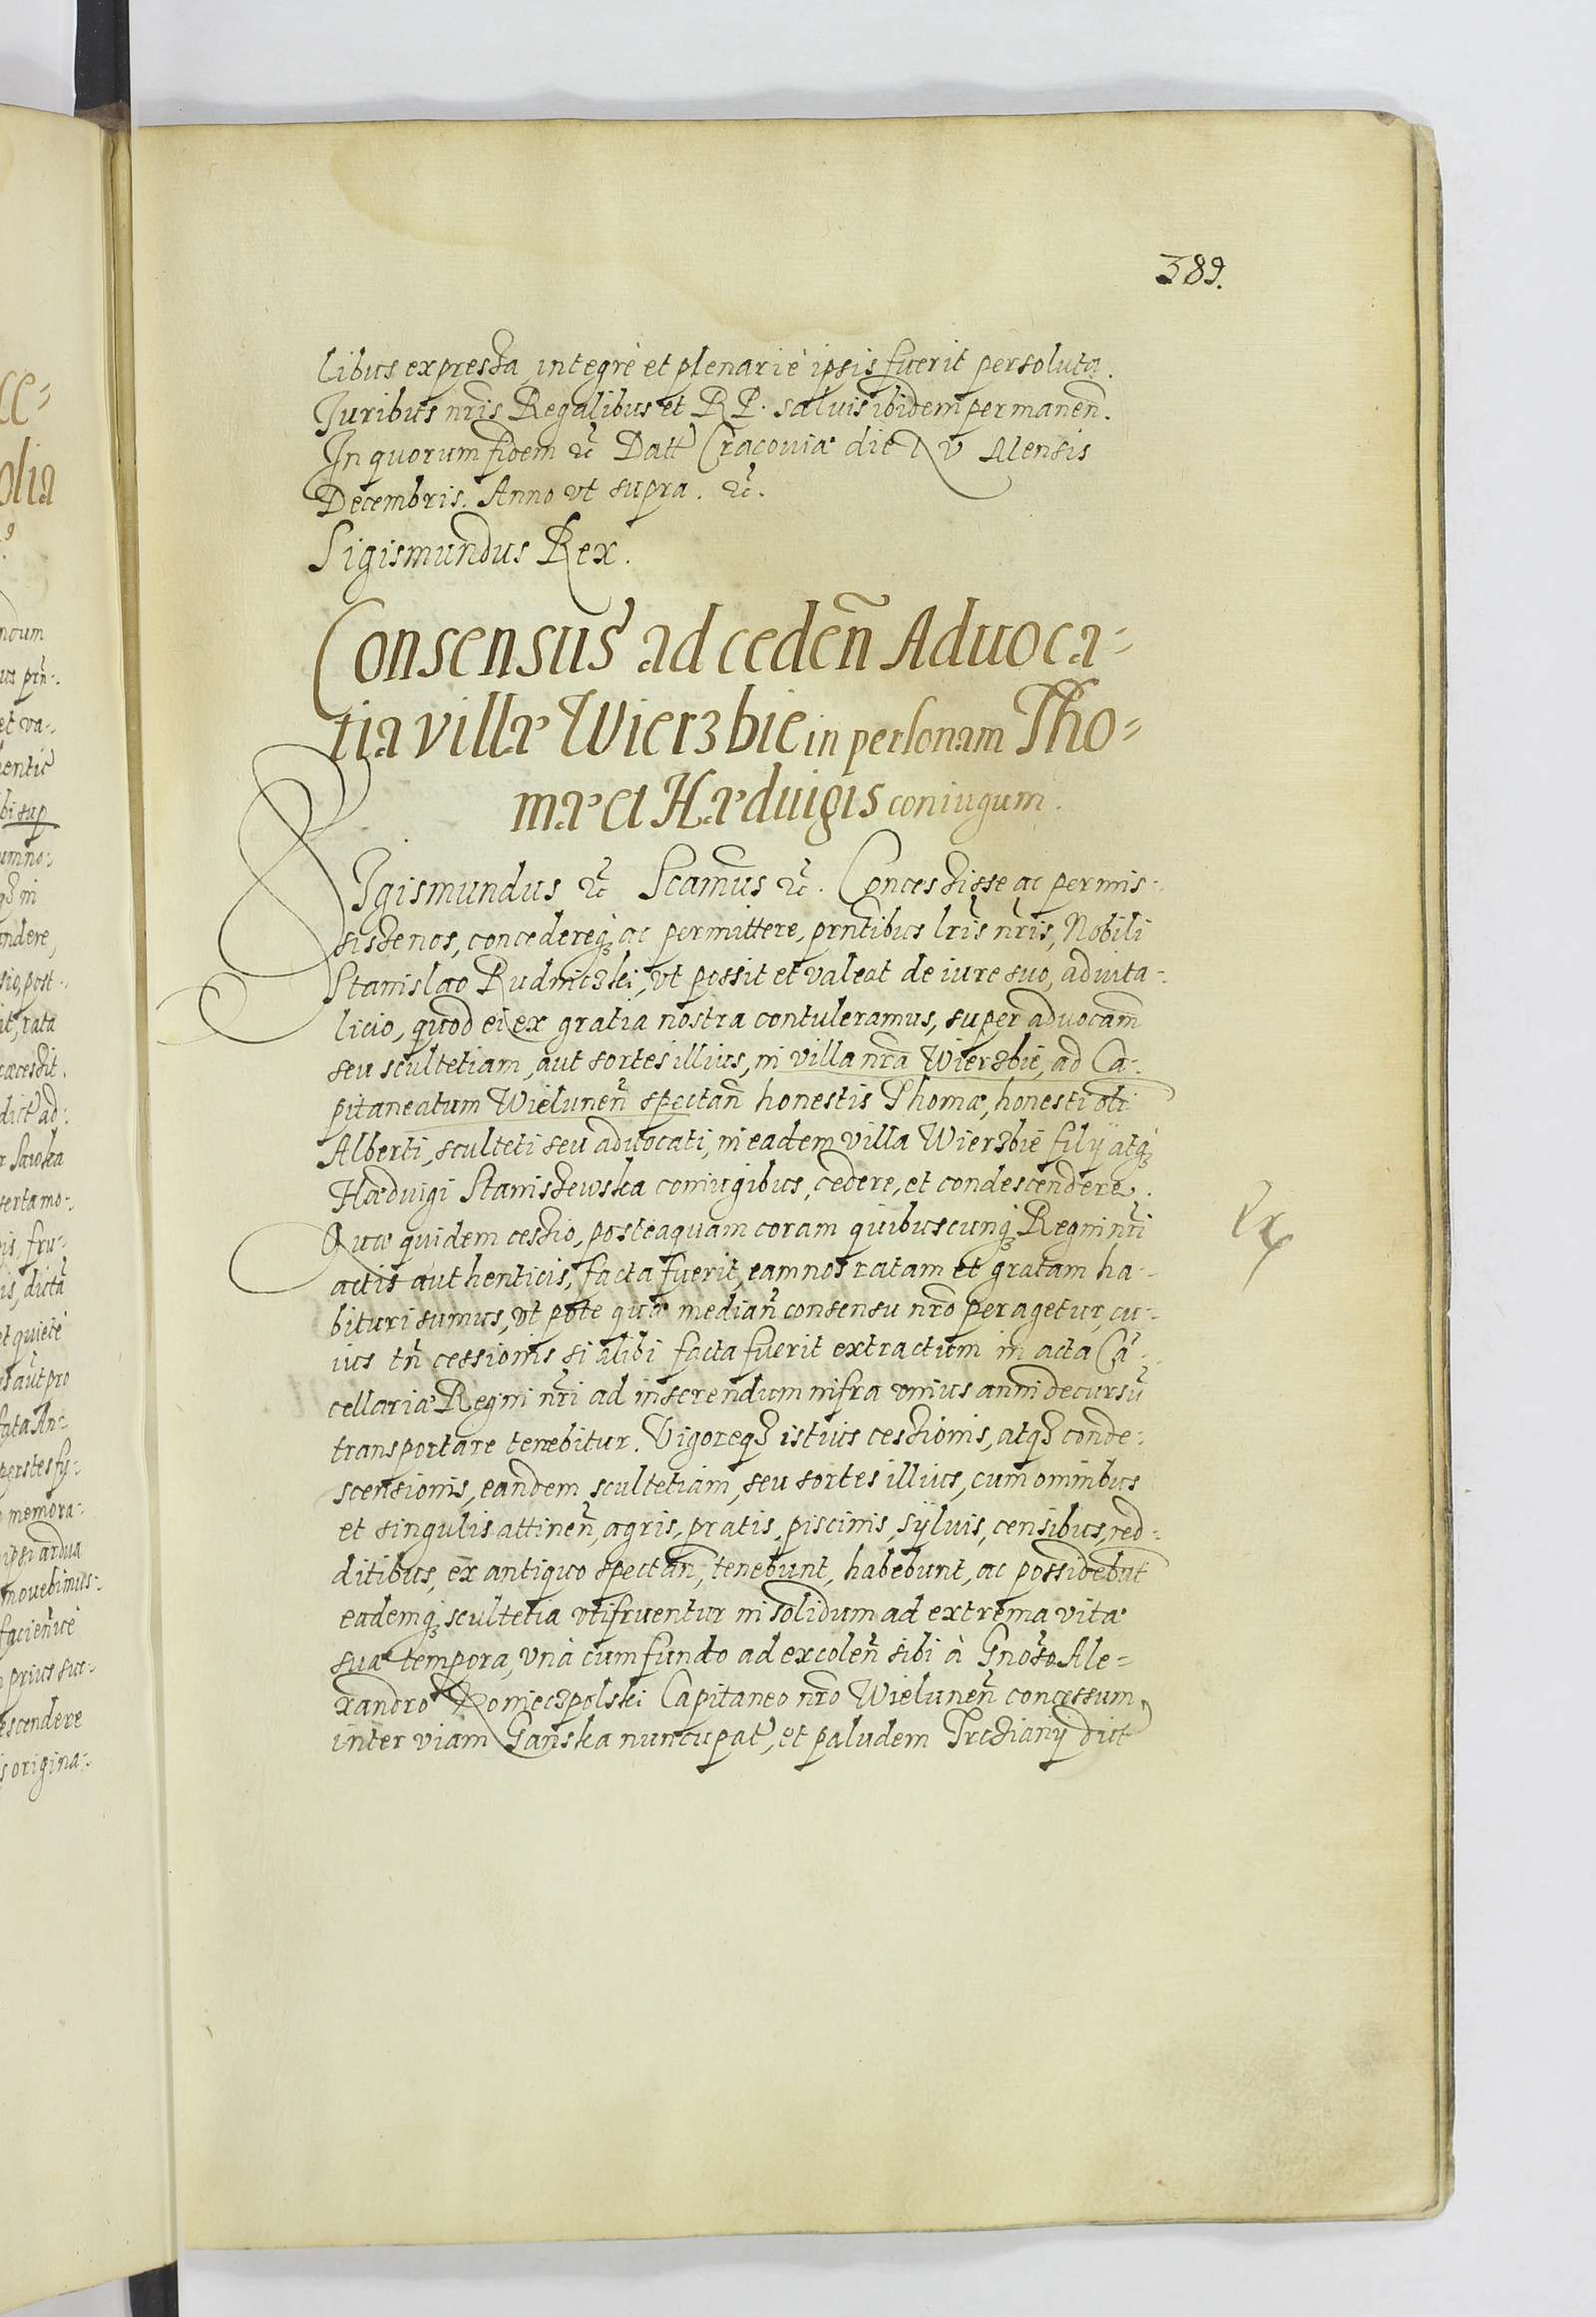 389.
libus expressa integrè et plenariè ipsis fuerit persoluta.
Juribus nr̃is Regalibus et R P. saluis ibidem permanen̄.
In quorum fidem etc̃ Datt Cracouiæ die XV Mensis
Decembris. Anno vt supra. etc̃.
Sigismundus Rex.
Consensus ad ceden̄ Aduoca-
tia villæ Wierzbie in personam Tho-
mæ et Hæduigis coniugum.
Sigismundus etc̃ Scamus etc̃. Concessisse ac permis-
sisse nos, concedereq; ac permittere, prñtibus lr̃is nr̃is, Nobili
Stanislao Rudniczki, vt possit et valeat de iure suo, aduita-
licio, quod ei ex gratia nostra contuleramus, super aduocam̃
seu scultetiam, aut sortes illius, in villa nr̃a Wierzbie, ad Ca-
pitaneatum Wielunen̄ spectan̄ honestis Thomæ, honesti oli
Alberti, sculteti seu aduocati, in eadem villa Wierzbie filÿ atq;
Hæduigi Stanissewska coniugibus, cedere, et condescendere.
Quæ quidem cessio, posteaquam coram quibuscunq; Regni nr̃i
actis authenticis, facta fuerit, eam nos ratam et gratam ha-
bituri sumus, vt pote quæ median̄ consensu nr̃o peragetur, cu-
ius tñ cessionis si alibi facta fuerit extractum in acta Cã-
cellariæ Regni nr̃i ad inserendum infra vnius anni decursũ
transportare tenebitur. Vigoreq; istius cessionis, atq; conde-
scensionis, eandem scultetiam, seu sortes illius, cum omnibus
et singulis attinen̄, agris, pratis, piscinis, sÿluis, censibus, red-
ditibus, ex antiquo spectan̄, tenebunt, habebunt, ac possidebũt
eademq; scultetia vtifruentur in solidum ad extrema vitæ
suæ tempora, vnà cum fundo ad excolen̄ sibi à Gnõso Ale-
xandro Konieczpolski Capitaneo nr̃o Wielunen̄ concessum,
inter viam Ganska nuncupat, et paludem dict